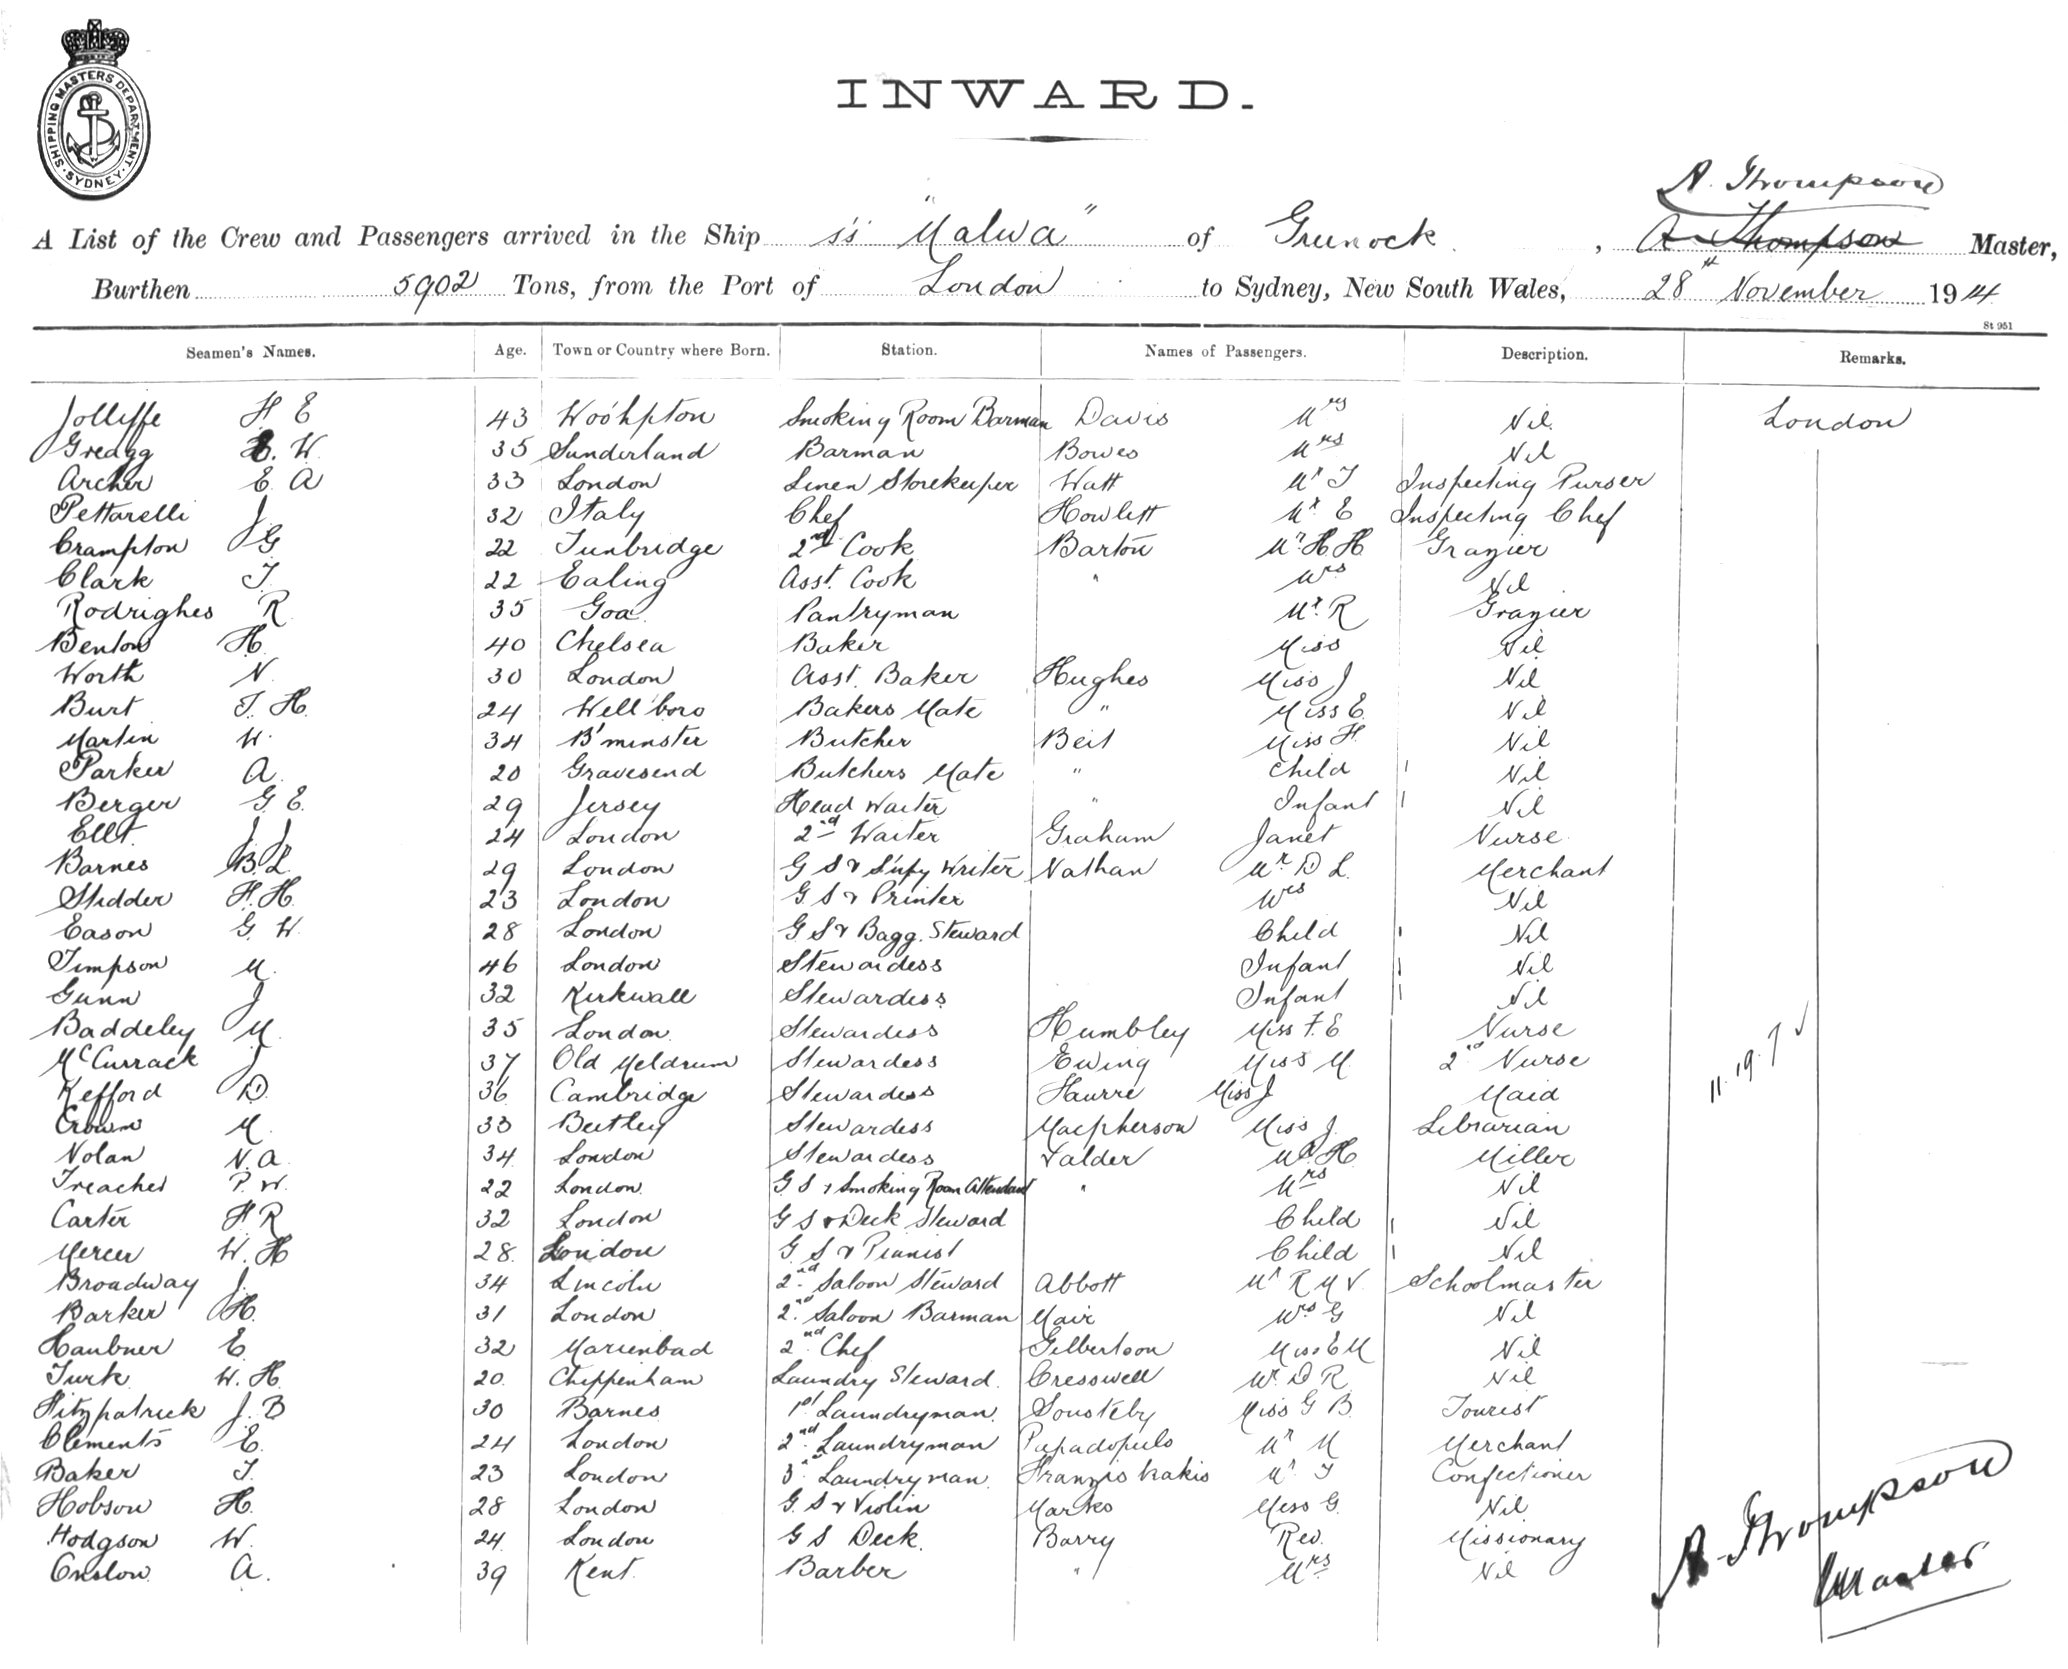 SHIPPING MASTERS DEPARTMENT. SYDNEY.
INWARD.
A. Thompson
A List of the Crew and Passengers arrived in the Ship s.s. "Malwa" of Greenock, A Thompson Master,
Burthen 5902 Tons, from the Port of London to Sydney, New South Wales, 28th November 1914
St 951
Seamen's Names. Age. Town or Country where Born. Station. Names of Passengers. Description. Remarks.
Jolliffe H E 43 Smoking Room Barman Davis Mrs Nil London
Gregg E. W. 35 Sunderland Barman Bowes Mrs Nil
Archer E. A 33 London Linen Storekeeper Watt Mr T Inspecting Purser
Pettarelli J 32 Italy Chef Howlett Mr E Inspecting Chef
Crampton G 22 Tunbridge 2nd Cook Barton Mr H H Grazier
Clark T. 22 Ealing Asst. Cook " Mrs Nil
Rodrighes R 35 Goa Pantryman Mr. R Grazier
Benton H. 40 Chelsea Baker Miss Nil
Worth N. 30 London Asst. Baker Hughes Miss J Nil
Burt T. H. 24 Well'boro Bakers Mate " Miss E. Nil
Martin W. 34 B'minster Butcher Beit Miss H. Nil
Parker A. 20 Gravesend Butchers Mate " Child 1 Nil
Berger G E. 29 Jersey Head Waiter " Infant 1 Nil
Ellt. J J 24 London 2nd Waiter Graham Janet Nurse
Barnes B. L. 29 London G S & Writer Nathan Mr D L. Merchant
Stidder H. H. 23 London G S & Printer Mrs Nil
Eason G. W. 28 London G S & Bagg. Steward Child 1 Nil
Timpson M. 46 London Stewardess Infant 1 Nil
Gunn J 32 Kirkwall Stewardess Infant 1 Nil
Baddeley M. 35 London Stewardess Humbley Miss F. E Nurse
McCurrack J 37 Old Meldrum Stewardess Ewing Miss M. 2nd Nurse
Kefford D. 36 Cambridge Stewardess Hurre Miss J Maid 11.19.7 ✓
Crown M. 33 Bentley Stewardess Macpherson Miss J. Librarian
Nolan N. A. 34 London Stewardess Valder Mr H Miller
Treacher P. W. 22 London G S & Smoking Room Attendant " Mrs Nil
Carter H R 32 London G S & Deck Steward Child 1 Nil
Mercer W. H 28 London G. S & Pianist Child 1 Nil
Broadway J. 34 Lincoln 2nd Saloon Steward Abbott Mr R M V Schoolmaster
Barker H. 31 London 2nd Saloon Barman Mair Mrs G Nil
Haubner E. 32 Marienbad 2nd Chef Gilbertson Miss E M Nil
Turk W. H. 20 Chippenham Laundry Steward. Cresswell Mr D R Nil
Fitzpatrick J. B 30 Barnes 1st Laundryman Sousteby Miss G B. Tourist
Clements E. 24 London 2nd Laundryman Papadopulo Mr M Merchant
Baker T. 23 London 3rd Laundryman Mr T Confectioner
Hobson H. 28 London G. S & Violin Marks Miss G. Nil
Hodgson W. 24 London G S Deck. Barry Rev. Missionary
Onslow A. 39 Kent Barber " Mrs Nil
A. Thompson
Master